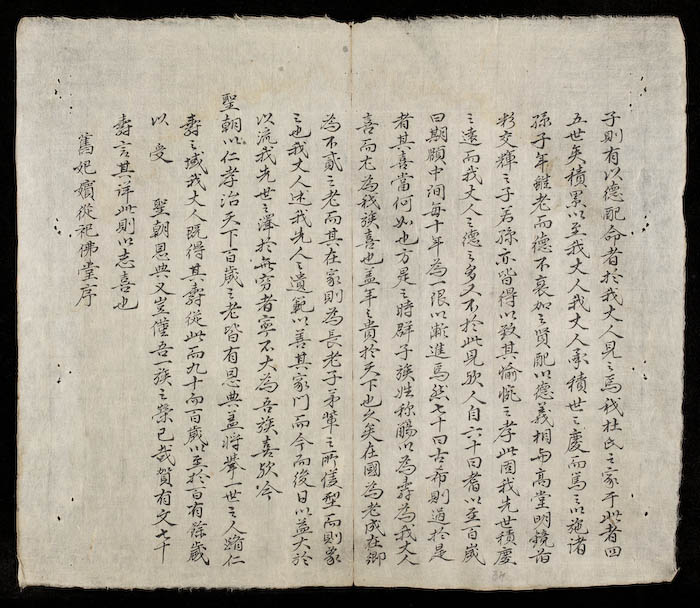 子則有以德配命者於我丈人見之焉我杜氏之家于此者四
五世矣積累以至我丈人我丈人承積世之慶而篤之以施諸
孫子年雖老而德不衰加之賢配以德義相与高堂明鏡首
彩交輝之子若孫亦皆得以致其愉惋之孝此固我先世積慶
之遠而我丈人之德之多又不於此見欤人自六十曰耆以至百歲
曰期頤中間每十年為一限以漸進焉然七十曰古希則過於是
者其喜當何如也方是之時群子族姓称觴以為壽為我丈人
喜而尤為我族喜也盖年之貴於天下也久矣在國為老成在鄉
為不貳之老而其在家則為長老子弟輩之所儀型而則象
之也我丈人述我先人之遺範以善其家門而今而後日以益大於
以流我先世之澤於無窮者寧不大為吾族喜欤今
聖朝以仁孝治天下百歲之老皆有恩典盖将舉一世之人躋仁
壽之域我丈人既得其壽從此而九十而百歲以至於百有餘歲
以受 聖朝恩典又豈僅吾一族之榮已哉賀有文七十
壽言其详此則以志喜也
舊妃嬪從祀佛堂序
34